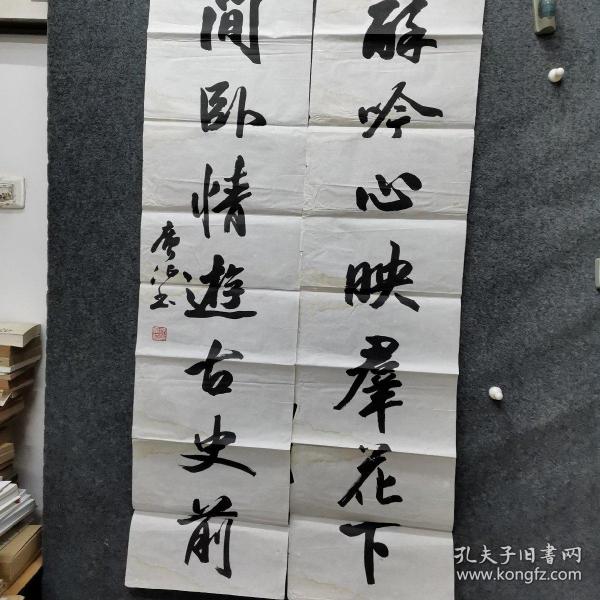 醉吟心映群花下
间卧情游古史前
书
孔夫子旧书网
www.kongfz.com